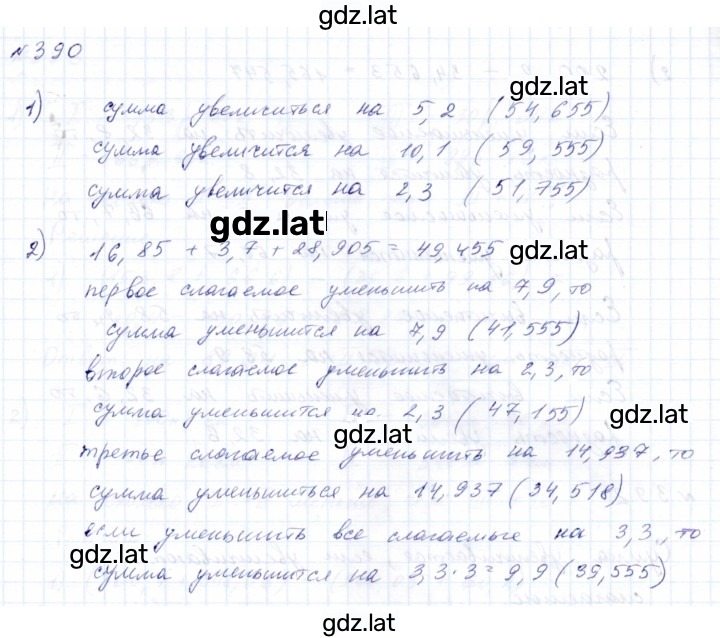 gdz.lat
№390
gdz.lat
1) сумма увеличиться на 5,2 (54,655)
gdz.lat
сумма увеличится на 10,1 (59,555)
сумма увеличится на 2,3 (51,755)
gdz.lat
2) 16,85 + 3,7 + 28,905 = 49,455
gdz.lat
первое слагаемое уменьшить на 7,9, то
сумма уменьшится на 7,9 (41,555)
второе слагаемое уменьшить на 2,3, то
сумма уменьшится на 2,3 (47,155)
gdz.lat
gdz.lat
третье слагаемое уменьшить на 14,937, то
сумма уменьшиться на 14,937 (34,518)
если уменьшить все слагаемые на 3,3, то
gdz.lat
сумма уменьшится на 3,3·3=9,9 (39,555)
gdz.lat